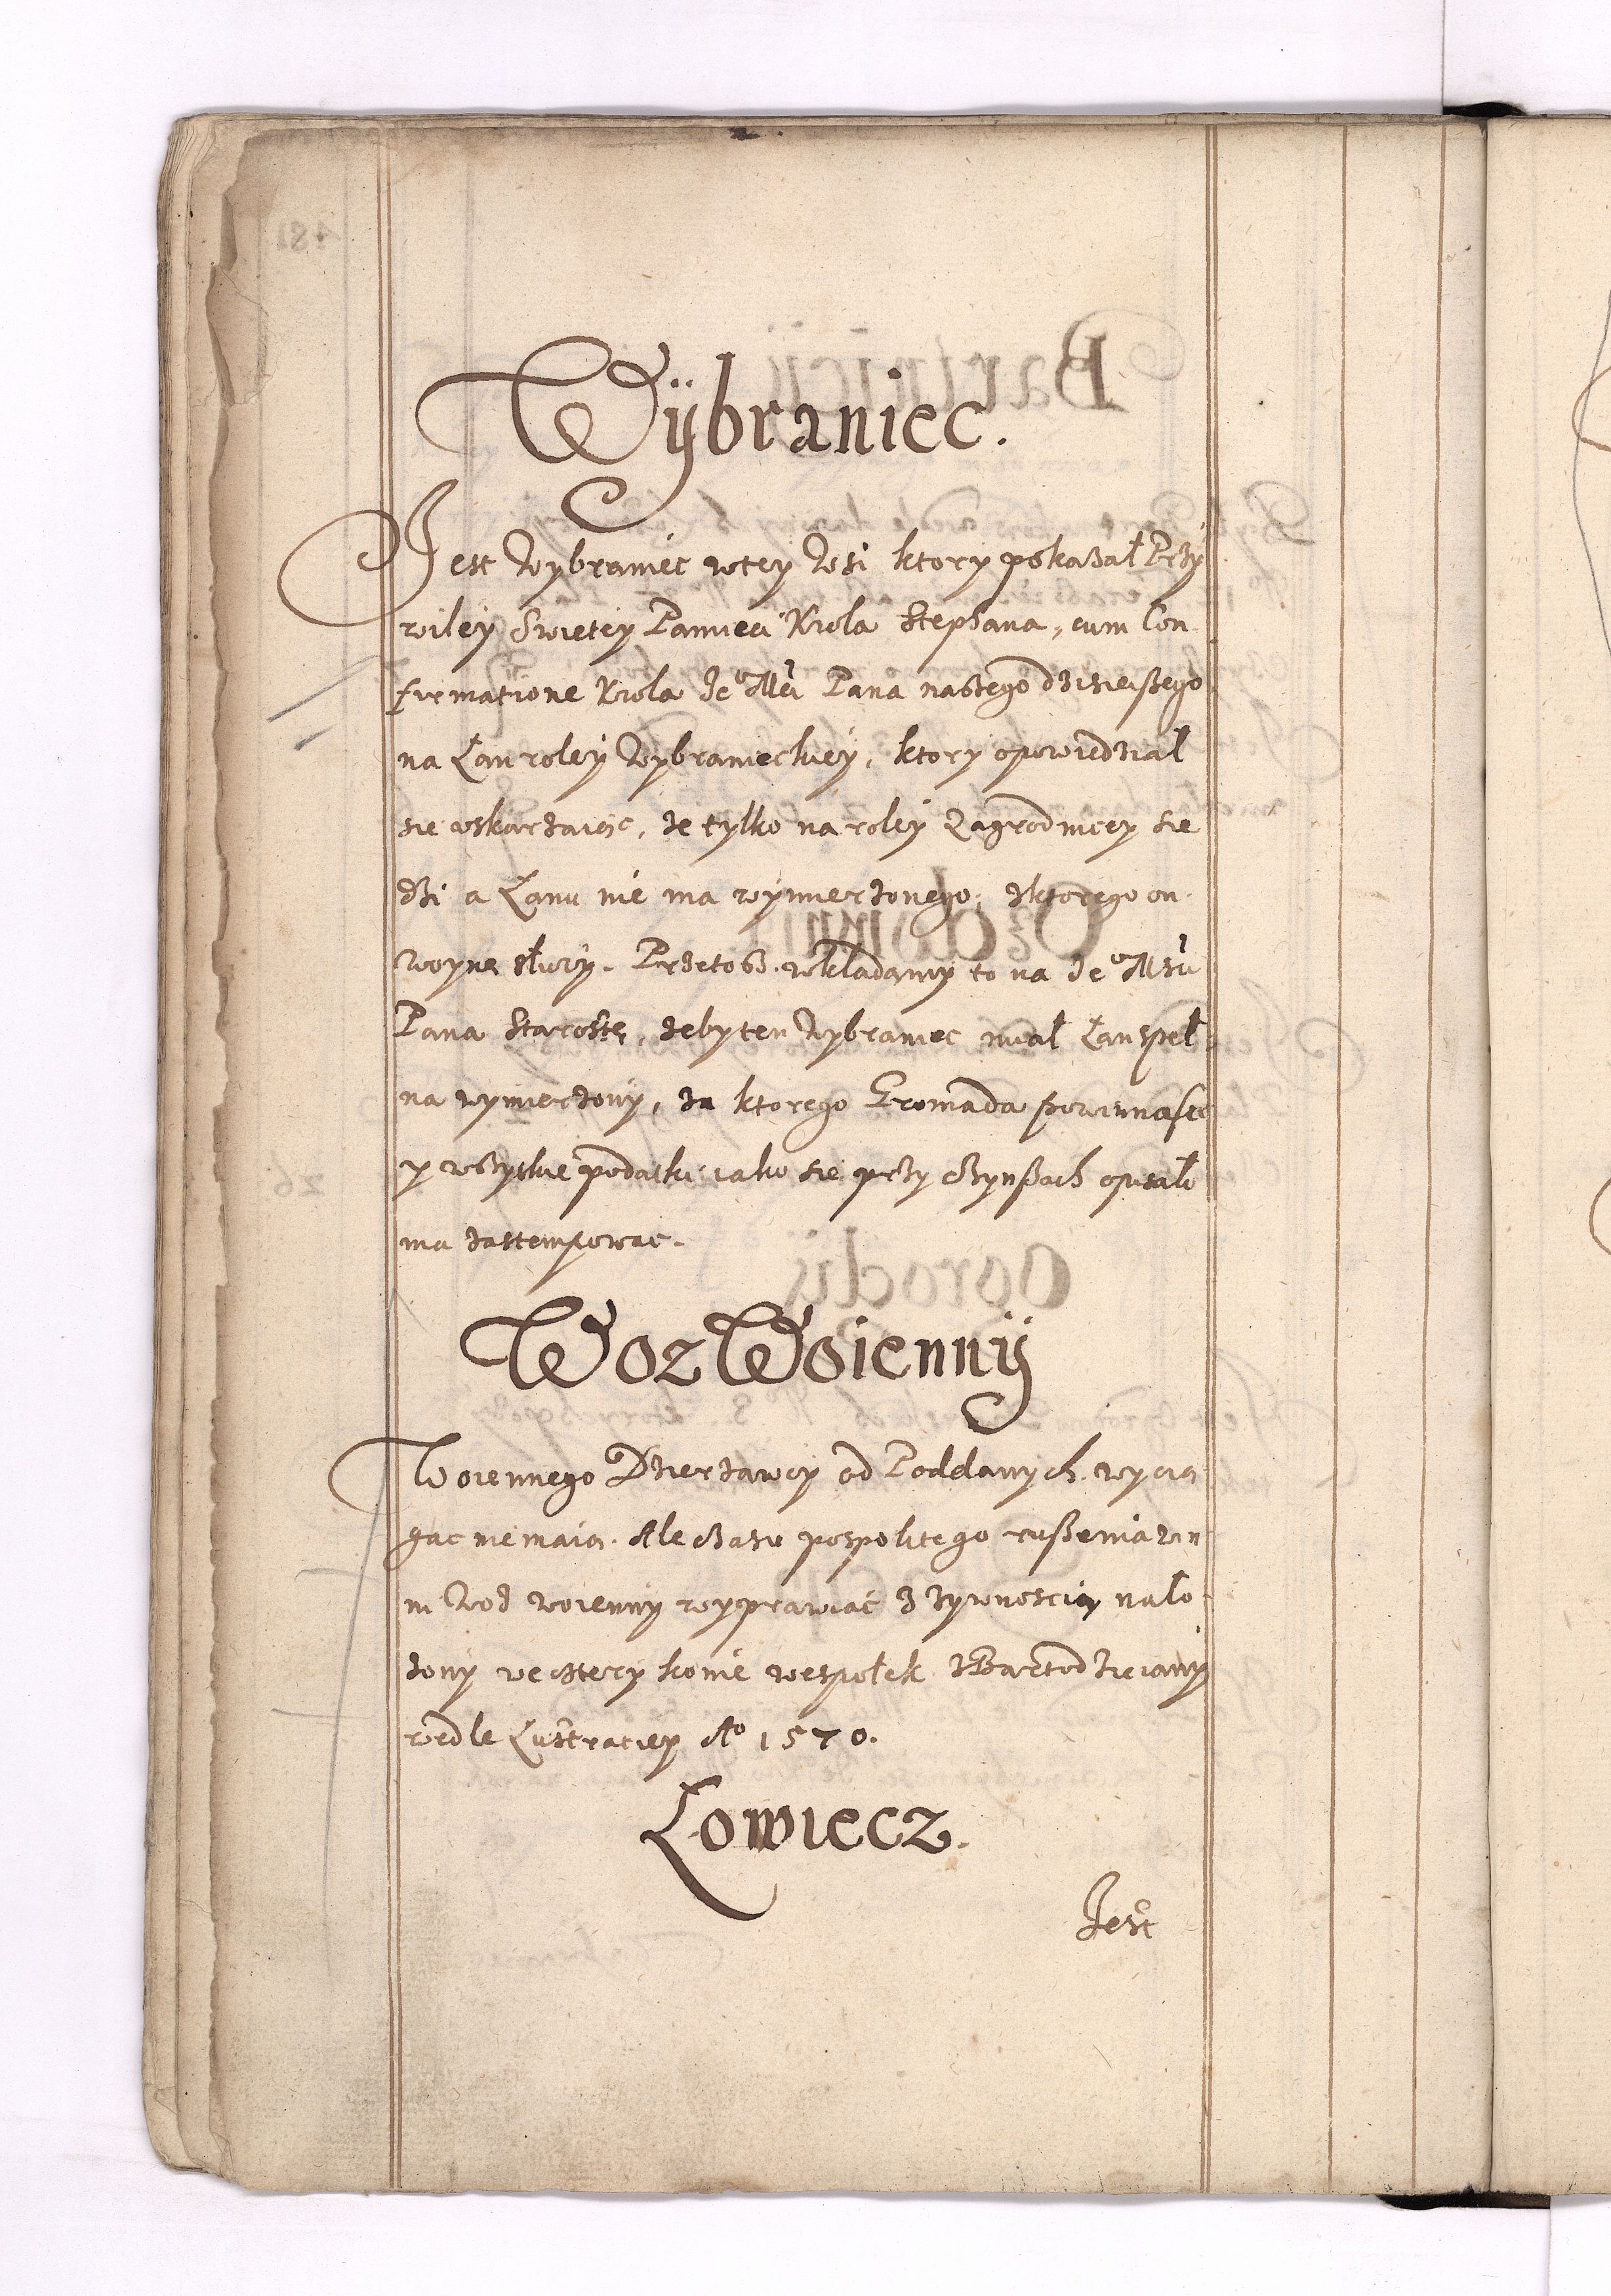 Wÿbraniec.
Jest Wybraniec w tey Wsi ktory pokazał Przÿ
wiley Swietey Pamieci Krola Stephana, cum Con
firmatione Krola Je° Mći Pana naszego dzisieiszego
na Łan roley Wybranieckiey, ktory opowiedział
sie uskarzaiąc, ze tylko na roley Zagrodniczey sie
dzi a Łanu nie ma wymierzonego, z ktorego on
woynę słuzy. Przetosz wkładamy to na Je° Msći
Pana Starostę, zeby ten Wybraniec miał Łan zpeł
na wymierzony, za ktorego Gromada powinna sie
y wszytkie podatki iako sie przy czynszach opisało
ma zastempowac.
Woz Woiennÿ
Woiennego Dzierzawcy od Poddanych wycią
gac nie maią. Ale czasu pospolitego ruszenia win
ni Woz woienny wyprawiać z zywnoscią nało
zony we cztery konie wespołek z Bartodzieiamy
wedle Lustraciey A° 1570.
Łowiecz.
Jest